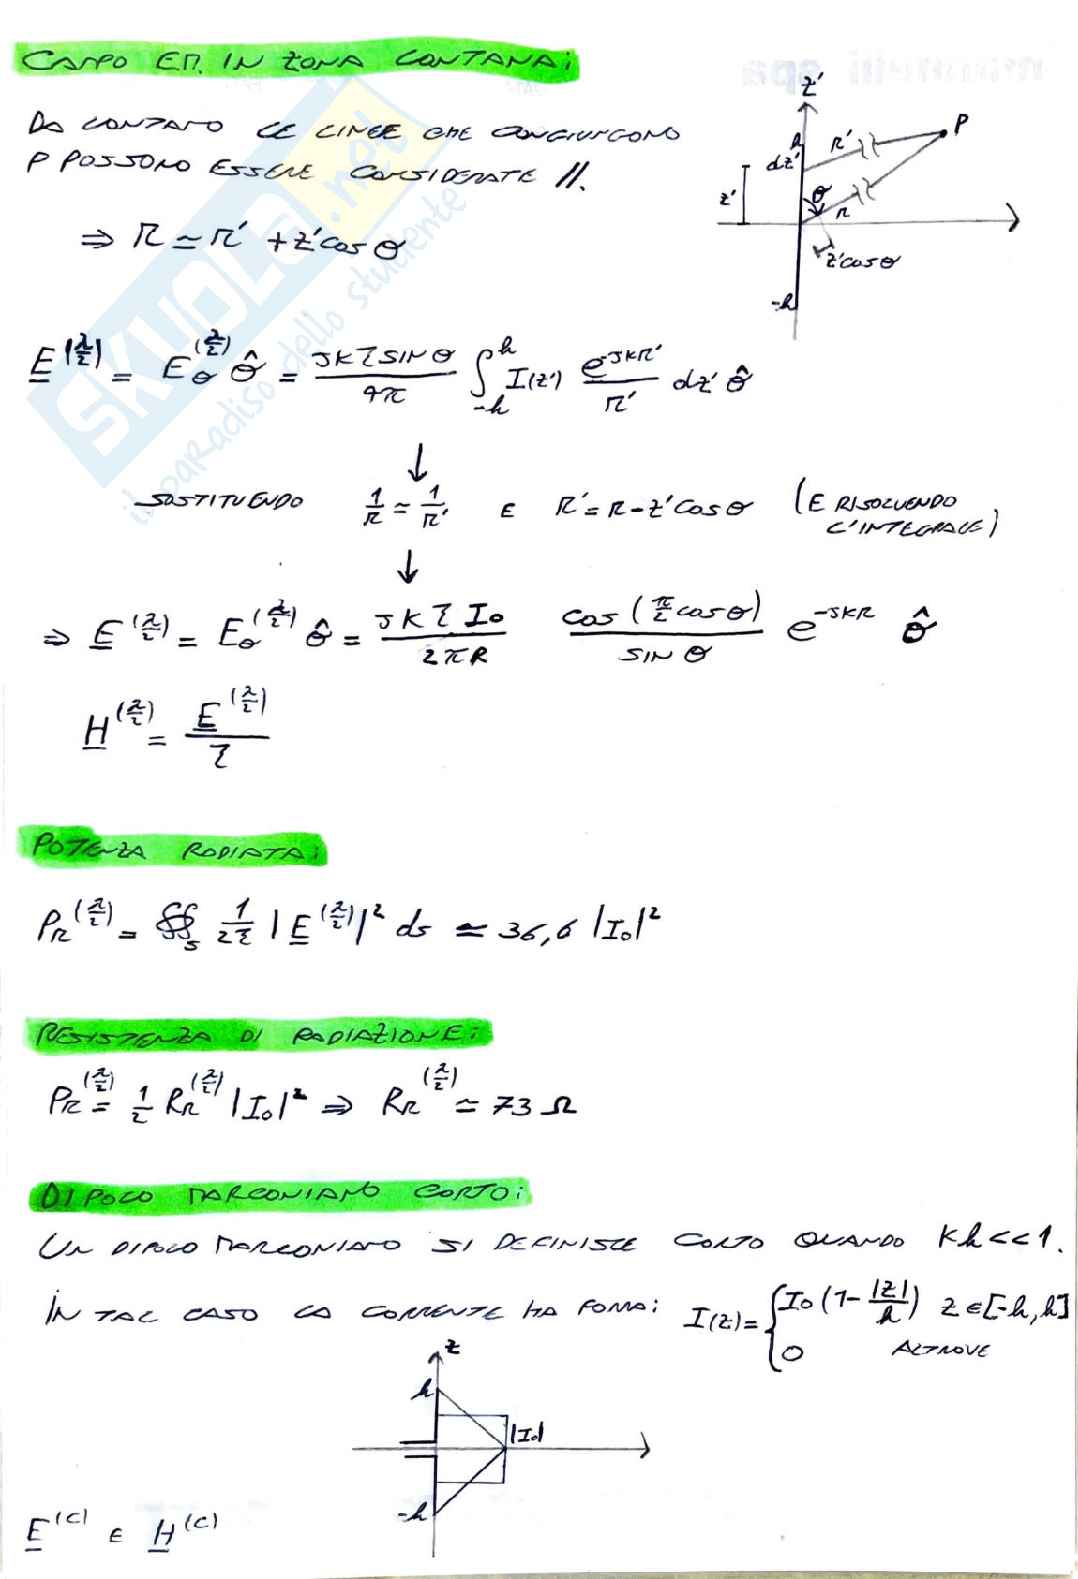 CAMPO EM. IN ZONA LONTANA:
DA LONTANO LE LINEE CHE CONGIUNGONO
P POSSONO ESSERE CONSIDERATE //.
⇒ R ≃ R' + z'cos θ
z'
h
dz'
R'
P
z'
θ
R
z'cos θ
-h
E^(λ/2) = E_θ^(λ/2) θ̂ = JKζ SIN θ / 4π ∫_{-h}^{h} I(z') e^{-JKR'} / R' dz' θ̂
↓
SOSTITUENDO 1/R ≃ 1/R' E R' = R - z'cos θ (E RISOLVENDO
L'INTEGRALE)
↓
⇒ E^(λ/2) = E_θ^(λ/2) θ̂ = JKζ I₀ / 2πR cos(π/2 cos θ) / SIN θ e^{-JKR} θ̂
H^(λ/2) = E^(λ/2) / ζ
POTENZA RADIATA:
P_R^(λ/2) = ∯_S 1/2ζ |E^(λ/2)|² ds ≃ 36,6 |I₀|²
RESISTENZA DI RADIAZIONE:
P_R^(λ/2) = 1/2 R_R^(λ/2) |I₀|² ⇒ R_R^(λ/2) ≃ 73 Ω
DIPOLO MARCONIANO CORTO:
UN DIPOLO MARCONIANO SI DEFINISCE CORTO QUANDO Kh<<1.
IN TAL CASO LA CORRENTE HA FORMA: I(z) = { I₀(1 - |z|/h) z ∈ [-h, h]
0 ALTROVE
z
h
|I₀|
-h
E^(c) E H^(c)
SKUOLA.net
il paradiso dello studente